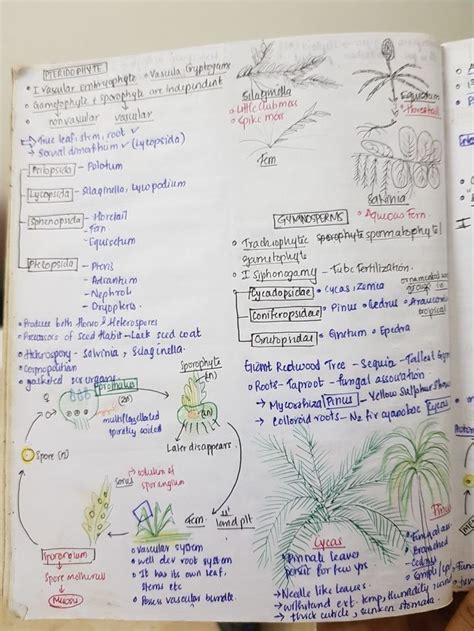 PTERIDOPHYTE
• I vascular embryophyte • Vascular Cryptogams
• Gametophyte & sporophyte are independent
nonvascular vascular
→ True leaf, stem, root ✓
→ Sexual dimorphism ✓ (Lycopsida)
Psilopsida - Psilotum
Lycopsida - Silaginella, Lycopodium
Sphenopsida - Horetail
- Fern
- Equisetum
Pteropsida - Pteris
- Adiantum
- Nephrol
- Dryopteris
• Produces both Homo & Heterospores
• Precursor of Seed Habit - Lack seed coat
• Heterospory - Salvinia, Silaginella.
• Cosmopolitan
• sex organs
Prothallus
multiflagellated
spirally coiled
Sporophyte
(2n)
(n)
Later disappears
Spore (n)
sorus
of
sporangium
Fern
land plt
Sporangium
Spore mothercell
Meiosis
• vascular system
• well dev root system
• It has its own leaf,
stems etc
• Possess vascular bundle.
Silaginella
• Little club moss
• Spike moss
Fern
Equisetum
• Horsetail
Salvinia
• Aqueous Fern
GYMNOSPERMS
• Trachiophytic sporophyte spermatophyte
gametophyte
• I Siphonogamy - Tube Fertilization.
Cycadopsidae • Cycas, Zamia
Coniferopsidae • Pinus • Cedrus • Araucaria
tropical
Gnetopsidae • Gnetum • Epedra
Giant Redwood Tree - Sequia - Tallest Gym
• Roots - Taproot - Fungal association
→ Mycorrhiza Pinus - Yellow Sulphur Shower
→ Colloroid roots - N₂ fix cyanobac Cycas
Cycas
• Pinnate leaves
persist for few yrs
• Needle like leaves
→ withstand ext. temp, humidity
→ thick cuticle, sunken stomata
Pinus
• Fungal ass
• Branched